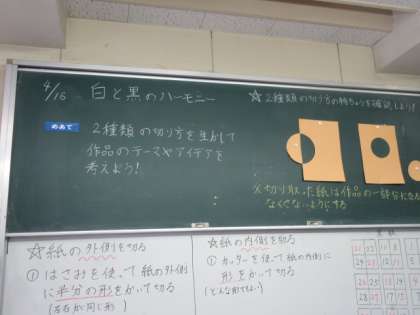 4/16 白と黒のハーモニー
めあて
2種類の切り方を生かして
作品のテーマやアイデアを
考えよう!
☆2種類の切り方の特ちょうを確認しよう!
※切り取った紙は作品の一部分になる
なくさないようにする
☆紙の外側を切る
①はさみを使って紙の外側
に半分の形をかいて切る
(左右が同じ形)
☆紙の内側を切る
①カッターを使って紙の内側に
形をかいて切る
(どんな形でもよい)